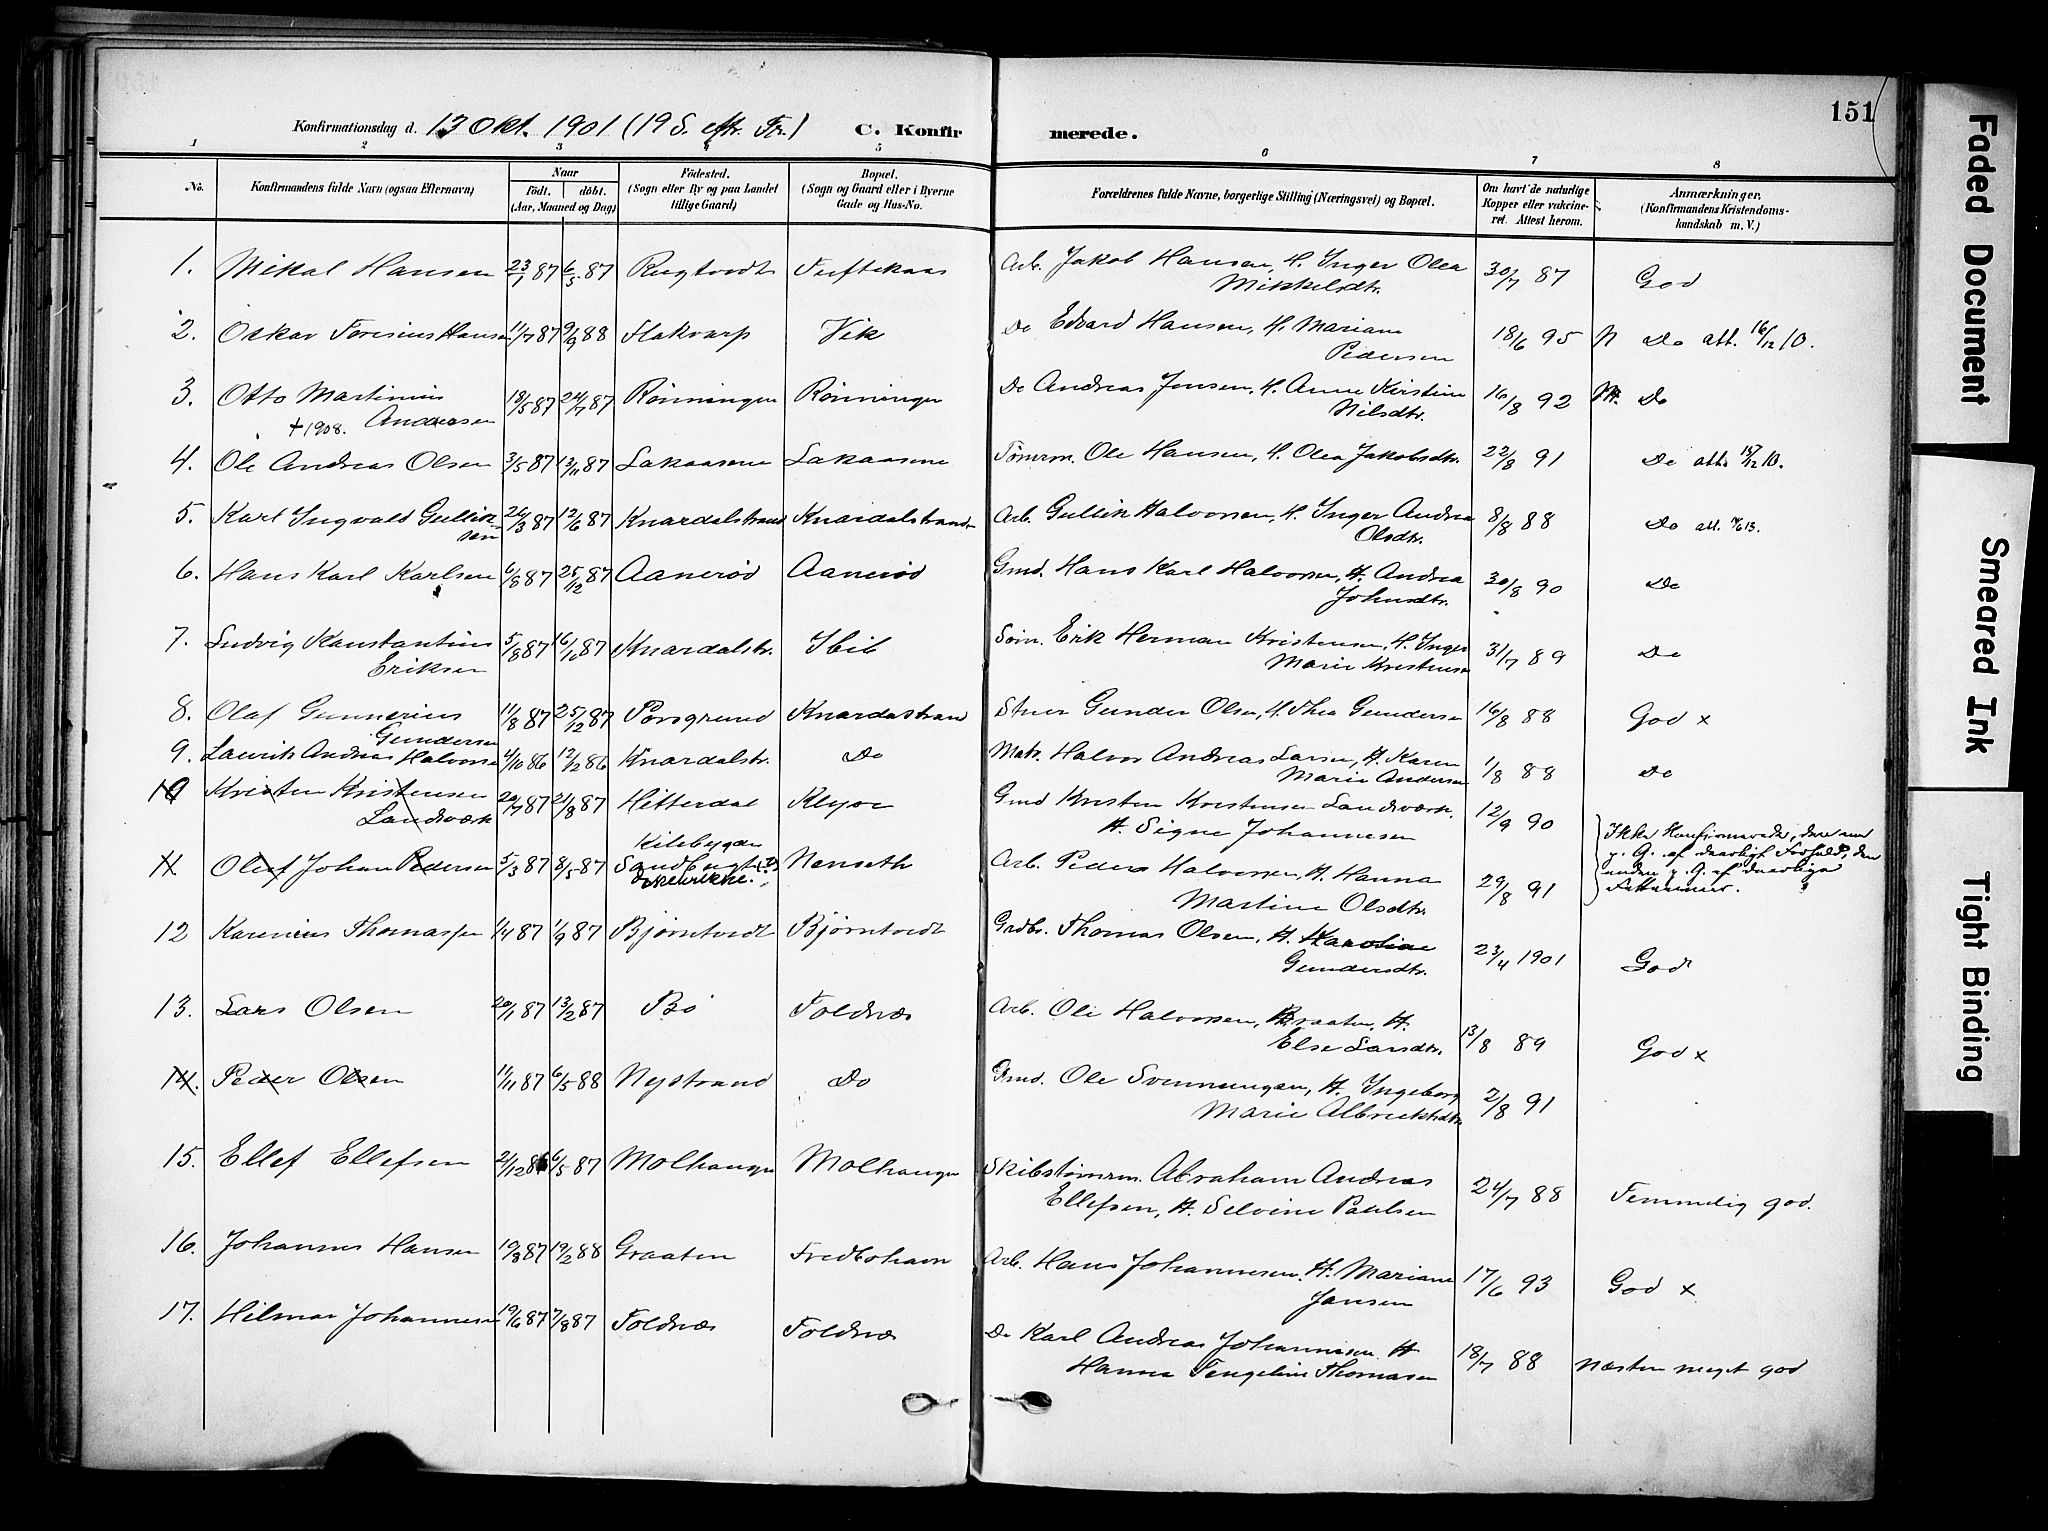 151
Konfirmationsdag d. 13 Okt. 1901 (19 S. eft. Tr.) C. Konfirmerede.
1 2 3 4 5 6 7 8
No. Konfirmandens fulde Navn (ogsaa Efternavn) Naar Födt. döbt. (Aar, Maaned og Dag) Födested. (Sogn eller By og paa Landet tillige Gaard) Bopæl. (Sogn og Gaard eller i Byerne Gade og Hus-No. Forældrenes fulde Navne, borgerlige Stilling (Næringsvei) og Bopæl. Om havt de naturlige Kopper eller vakcineret. Attest herom. Anmærkninger. (Konfirmandens Kristendomskundskab m. V.)
1. Mikal Hansen 23/1 87 6/5 87 Rugtvedt Tuftekaas Arb. Jakob Hansen, H. Inger Olea 30/7 87 God
Mikkelsdtr.
2. Oskar Hansen 11/7 87 9/9 88 Flakvarp Vik Do Edvard Hansen, H. Mariane 18/6 95 N Do att. 16/12 10.
Pedersen
3. Otto Martinius 18/5 87 24/7 87 Rönningen Rönningen Do Andreas Jensen, H. Anne Kirstine 16/8 92 Do
+1908. Andersen Nilsdtr.
4. Ole Andreas Olsen 3/5 87 13/11 87 Lakaasene Lakaasene Tömerm. Ole Hansen, H. Olea Jakobsdtr. 22/8 91 Do att. 15/12 10.
5. Karl Ingvald Gullik- 26/3 87 12/6 87 Knardalstrand Knardalstranden Arb. Gullik Halvorsen, H. Inger Andrea 8/8 88 Do att.
sen Olsdtr.
6. Hans Karl Karlsen 6/8 87 25/12 87 Aaneröd Aaneröd Gmd. Hans Karl Halvorsen, H. Andrea 30/8 90 Do
Johnsdtr.
7. Ludvig Konstantius 5/8 87 16/10 87 Knardalstr. Söm. Erik Herman Kristensen, H. Inger 31/7 89 Do
Eriksen Marie Kristensen
8. Olaf Gunnerius 11/8 87 25/12 87 Porsgrund Knardastrand Gunder Olsen, H. Thea Gundersen 16/8 88 God x
Gundersen
9. Laurits Andreas Halvorsen 4/10 86 12/12 86 Knardalstr. Do Matr. Halvor Andreas Larsen, H. Karen 1/8 88 Do
Marie Andersen
10 Kristen Kristensen 20/7 87 21/8 87 Hitterdal Klyve Gmd Kristen Kristensen Landsværk. 12/9 90
Landsværk H. Signe Johannesen
Ikke Konfirmerede, den ene
p. G. af daarligt Forhold, den
anden p. G. af daarlige
Kilebygden
11 Olaf Johan Pedersen 5/3 87 8/5 87 Sandbugt (?) Nenseth Arb. Peder Halvorsen, H. Hanna 29/8 91
Martine Olsdtr.
12 Karenius Thomassen 1/4 87 1/9 87 Björntvedt Björntvedt Grdbr. Thomas Olsen, H. Karoline 23/4 1901 God
Gundersdtr.
13. Lars Olsen 20/1 87 13/2 87 Bö Foldnæs Arb. Ole Halvorsen, Braaten, H. 13/8 89 God x
Else Larsdtr.
14. Peder Olsen 11/11 87 6/5 88 Nystrand Do Gmd. Ole Svenningsen, H. Ingeborg 2/8 91
Marie Albrektsdtr.
15. Ellef Ellefsen 21/12 86 6/5 87 Molhaugen Molhaugen Skibstömrm. Abraham Andreas 24/7 88 Temmelig god.
Ellefsen, H. Selvine Paulsen
16. Johannes Hansen 10/3 87 19/2 88 Graaten Fredbohavn Arb. Hans Johannesen, H. Mariane 17/6 93 God x
Jansen
17. Hilmar Johannesen 19/6 87 7/8 87 Foldnæs Foldnæs Do Karl Andreas Johannesen H 18/7 88 Næsten meget god
Hanna Thomasen
Faded Document
Smeared Ink
Tight Binding